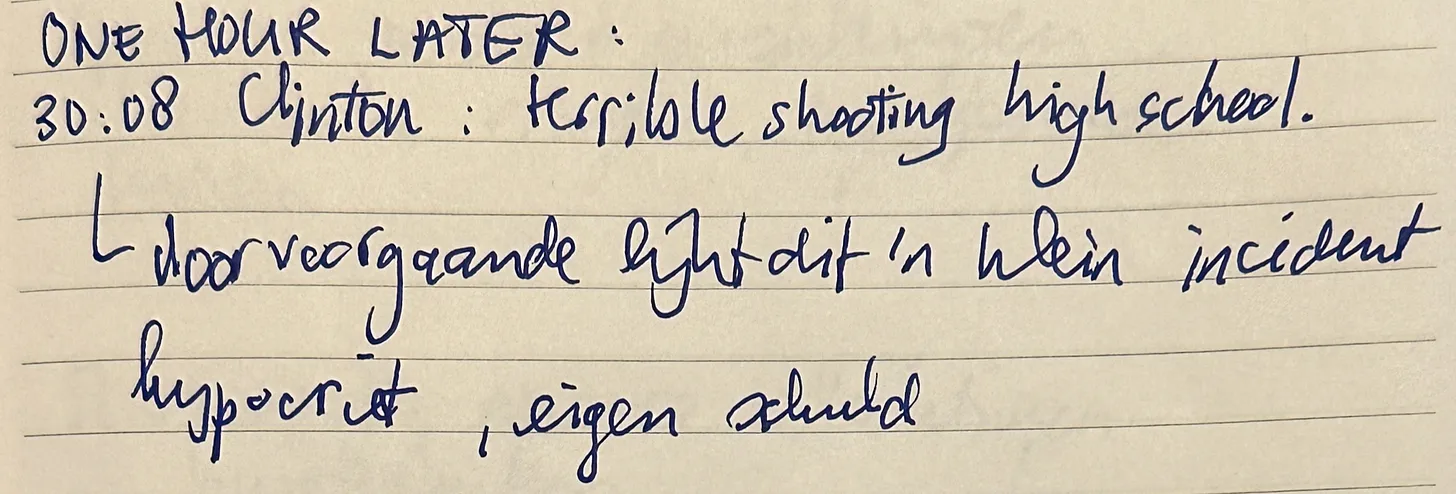 ONE HOUR LATER :
30:08 Clinton : terrible shooting high school.
door voorgaande lijkt dit 'n klein incident
hypocriet, eigen schuld